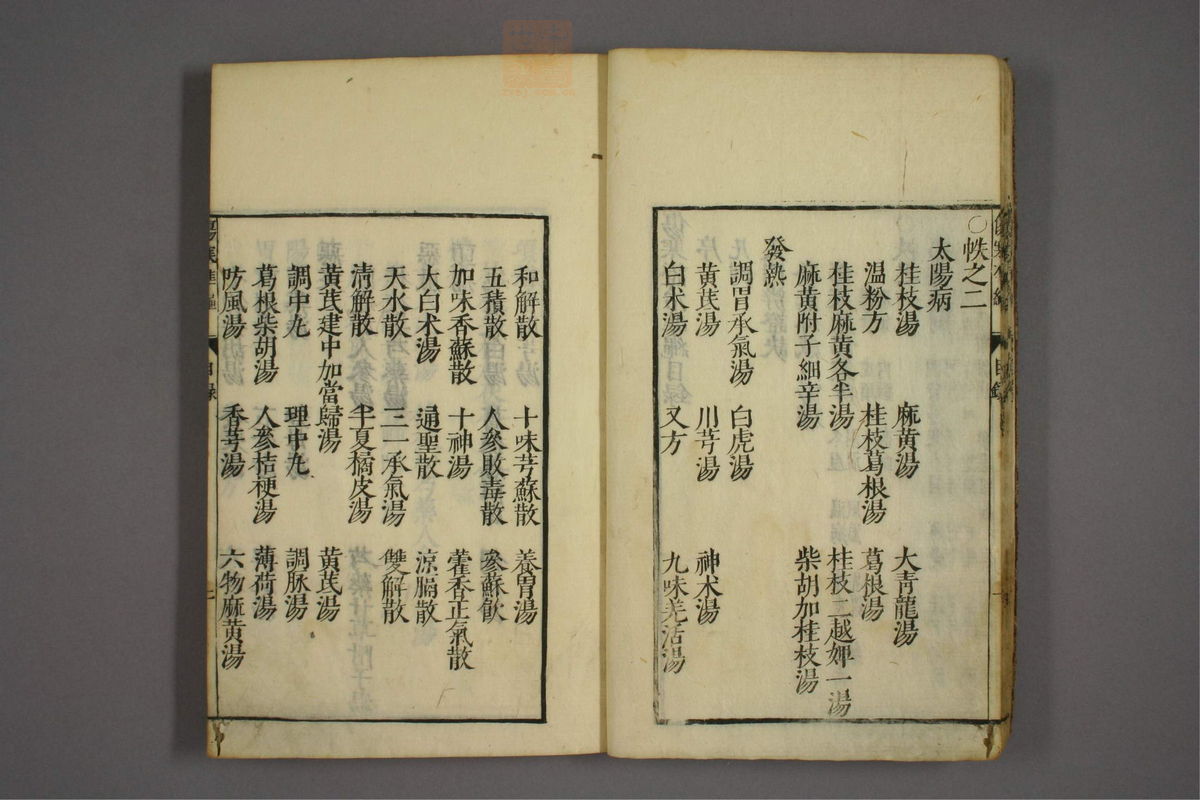 ○帙之二
太陽病
桂枝湯 麻黃湯 大青龍湯
温粉方 桂枝葛根湯 葛根湯
桂枝麻黃各半湯 桂枝二越婢一湯
麻黃附子細辛湯 柴胡加桂枝湯
發熱
調胃承氣湯 白虎湯
黃芪湯 川芎湯 神术湯
白术湯 又方 九味羌活湯
目錄
和解散 十味芎蘇散 養胃湯
五積散 人參敗毒散 參蘇飲
加味香蘇散 十神湯 藿香正氣散
大白术湯 通聖散 涼膈散
天水散 三一承氣湯 雙解散
清解散 半夏橘皮湯
黃芪建中加當歸湯 黃芪湯
調中丸 理中丸 調脉湯
葛根柴胡湯 人參桔梗湯 薄荷湯
防風湯 香芎湯 六物麻黃湯
目錄